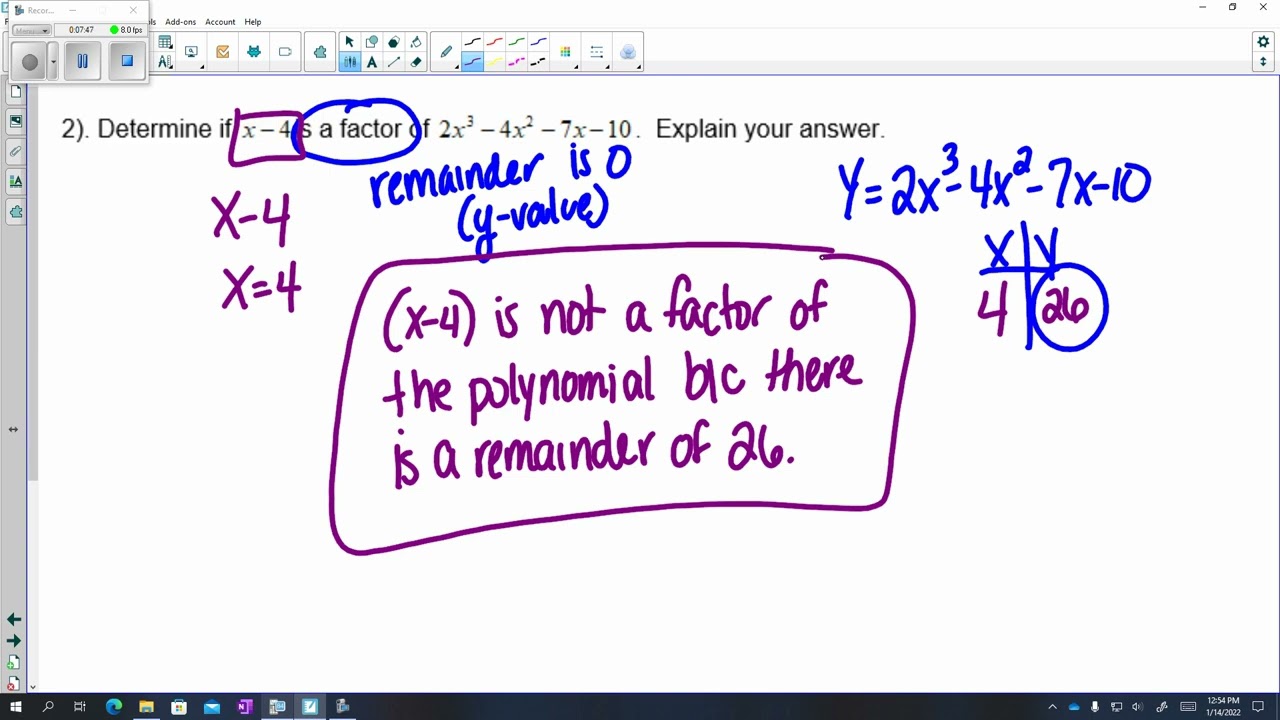 Recor...
Menu
0:07:47
8.0 fps
Add-ons
Account
Help
2). Determine if x – 4 is a factor of 2x³ – 4x² – 7x – 10. Explain your answer.
remainder is 0
(y-value)
x-4
x=4
y=2x³-4x²-7x-10
x y
4 26
(x-4) is not a factor of
the polynomial b/c there
is a remainder of 26.
12:54 PM
1/14/2022